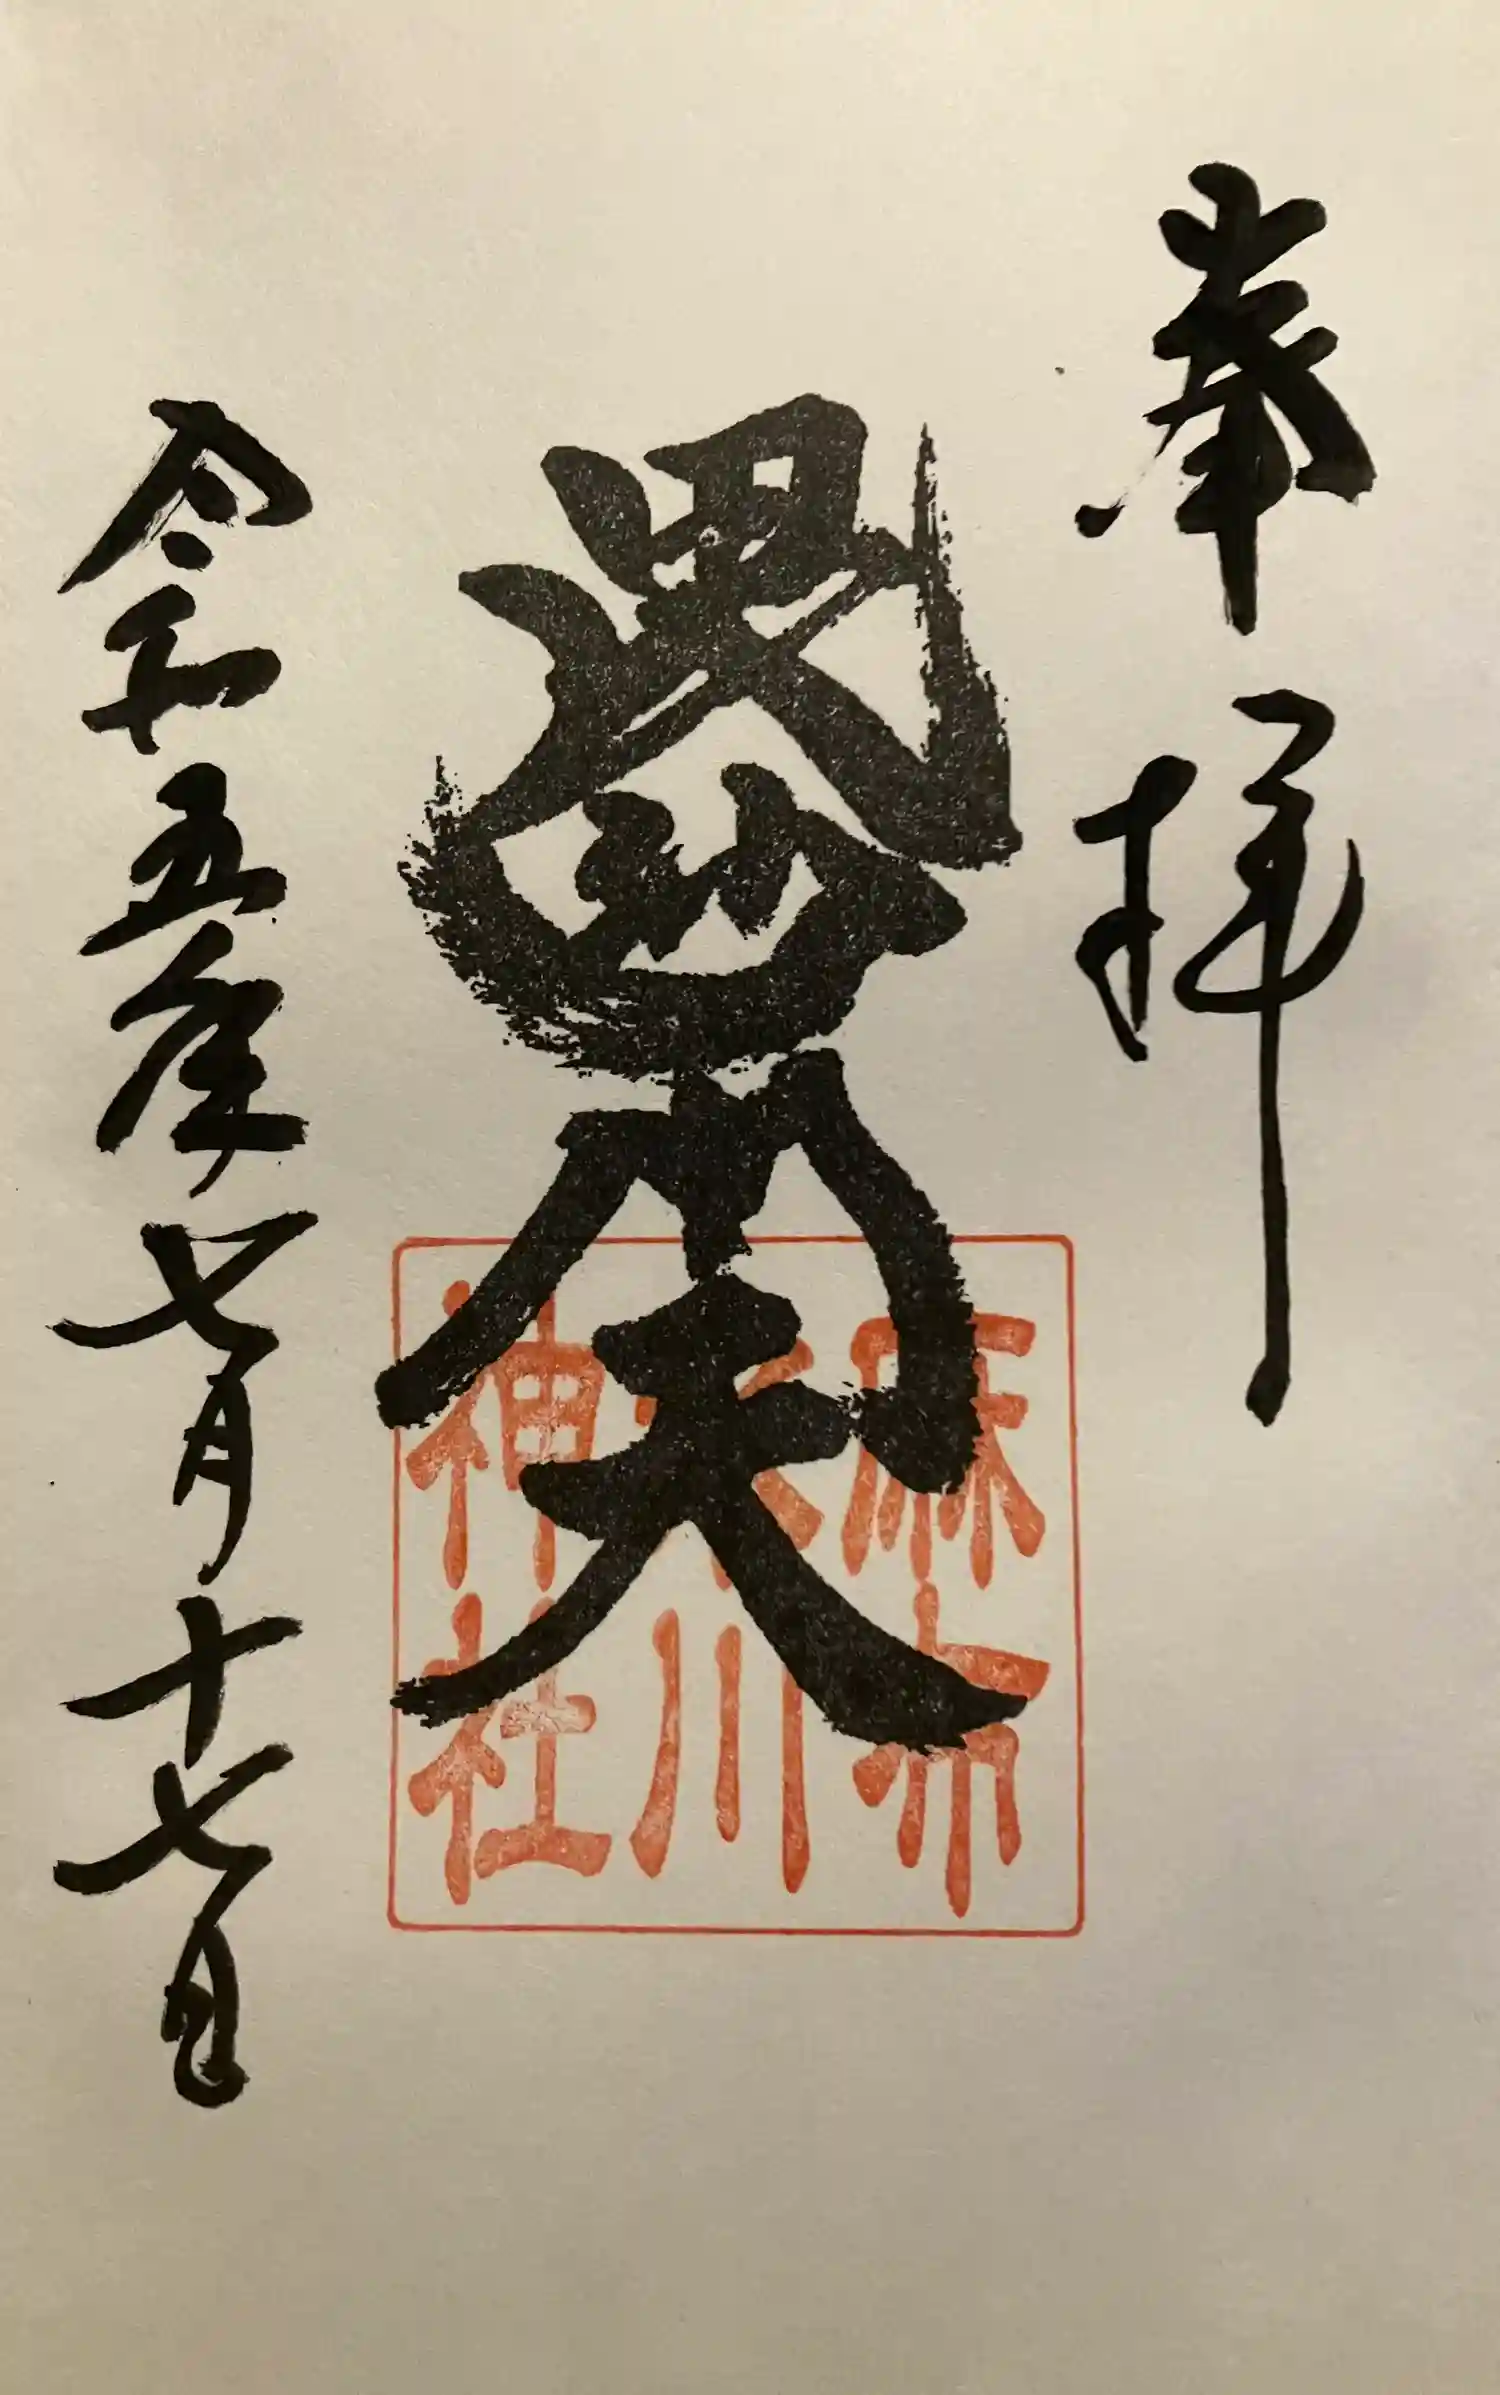 奉拝
麻布
氷川
神社
令和五年七月十七日